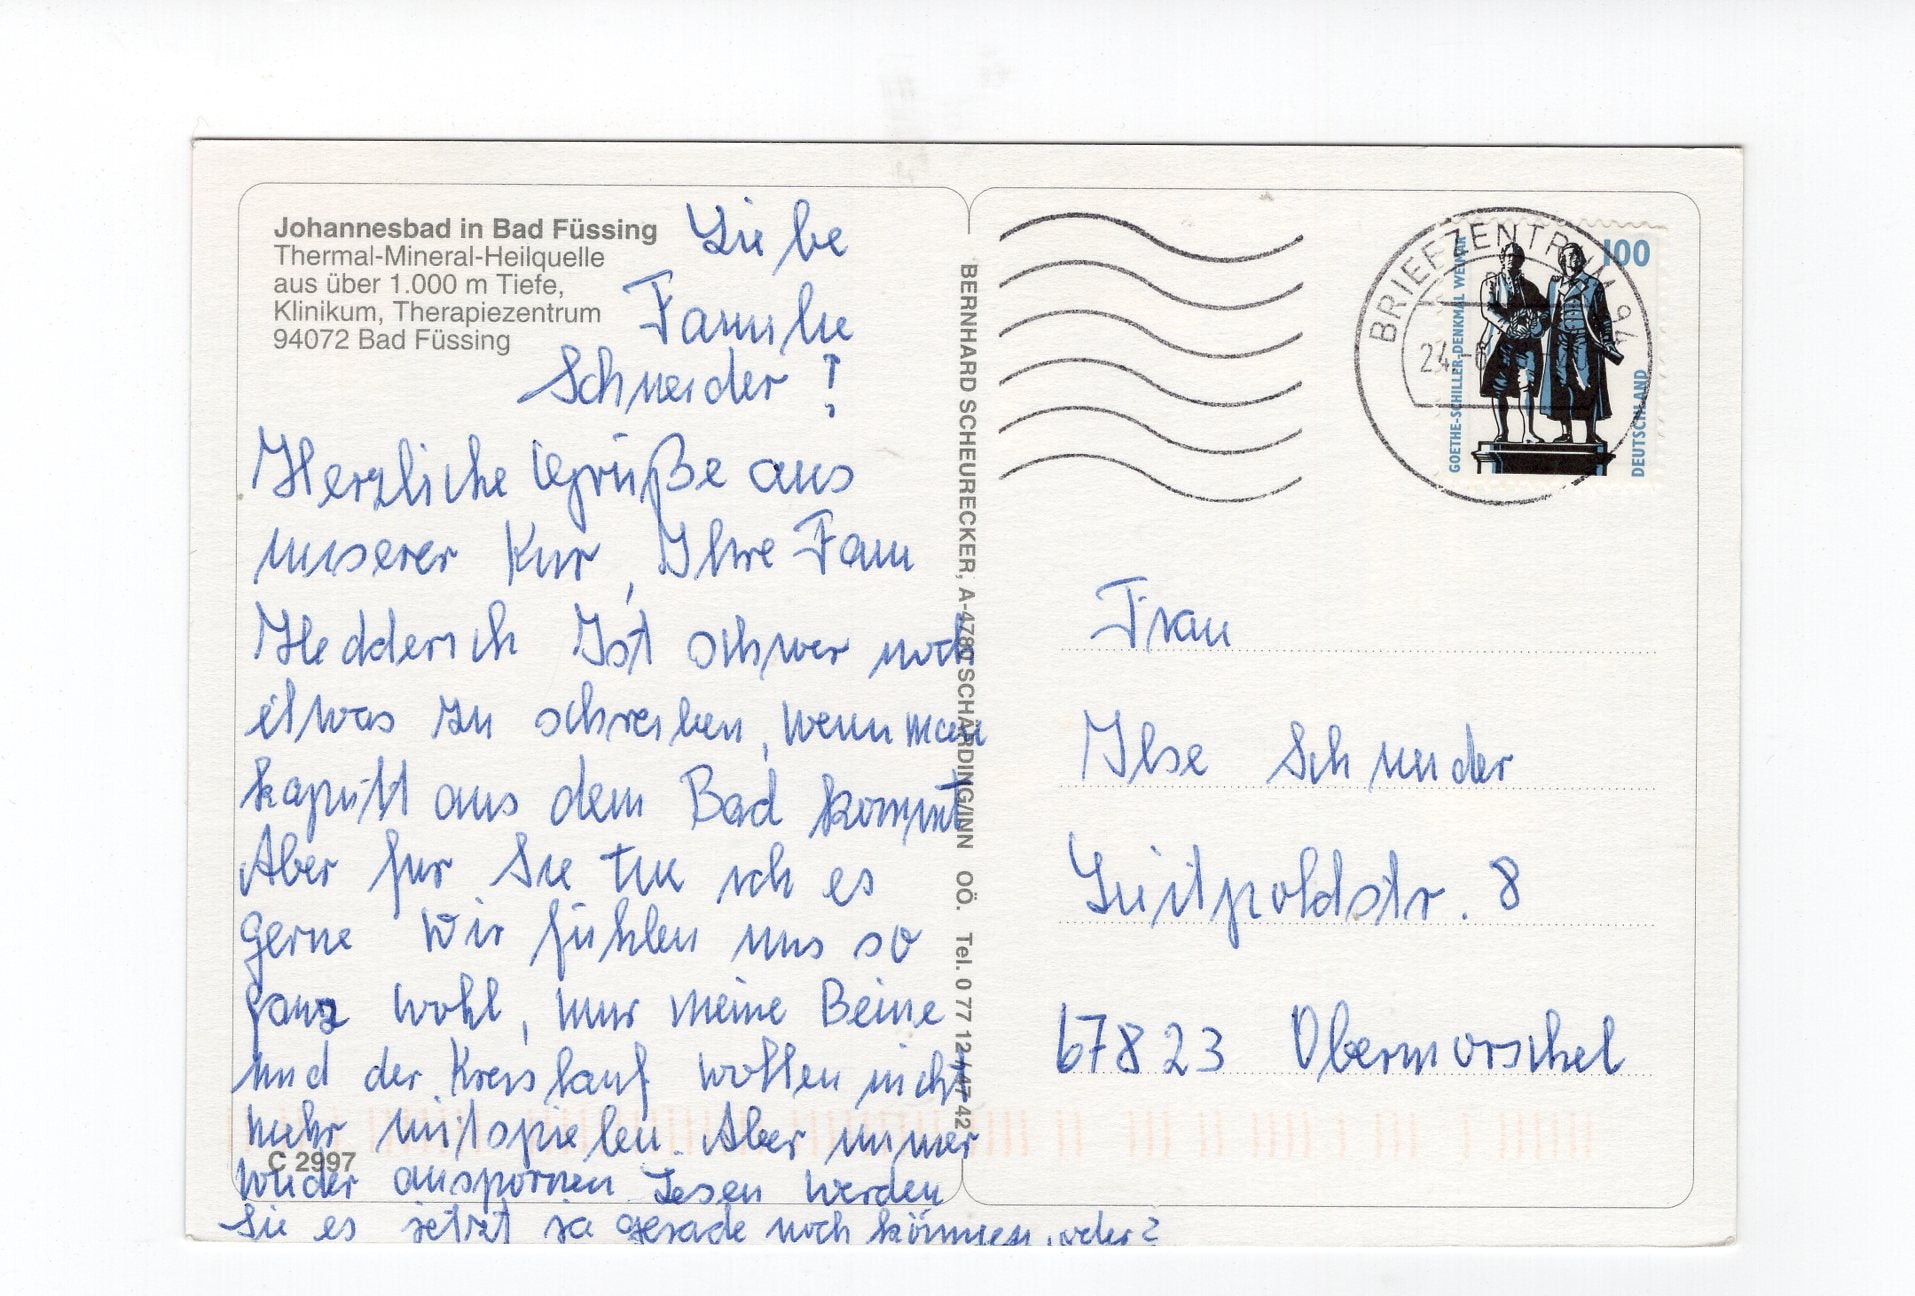 Johannesbad in Bad Füssing
Thermal-Mineral-Heilquelle
aus über 1.000 m Tiefe,
Klinikum, Therapiezentrum
94072 Bad Füssing
Liebe
Familie
Schneider!
Herzliche Grüße aus
unserer Kur, Ihre Fam
Hedderich Ist schwer noch
etwas zu schreiben, wenn man
kaputt aus dem Bad kommt
Aber für Sie tue ich es
gerne Wir fühlen uns so
ganz wohl, nur meine Beine
und der Kreislauf wollen nicht
mehr mitspielen. Aber immer
wieder anspornen Lesen werden
Sie es jetzt ja gerade noch können, oder?
C 2997
BERNHARD SCHEURECKER, A-4780 SCHÄRDING/INN OÖ. Tel. 0 77 12 / 47 42
BRIEFZENTRUM 94
24.-6
100
GOETHE-SCHILLER-DENKMAL WEIMAR
DEUTSCHLAND
Frau
Ilse Schneider
Luitpoldstr. 8
67823 Obermoschel